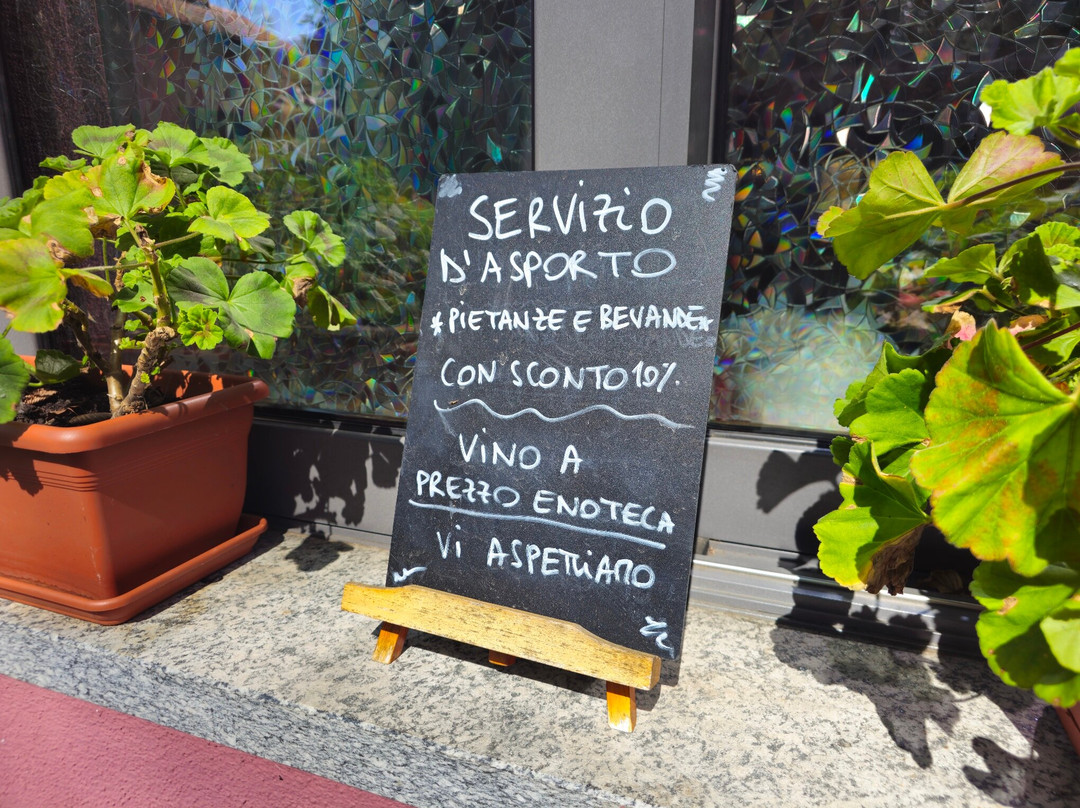 SERVIZIO
D'ASPORTO
*PIETANZE E BEVANDE*
CON SCONTO 10%.
VINO A
PREZZO ENOTECA
Vi ASPETTIAMO